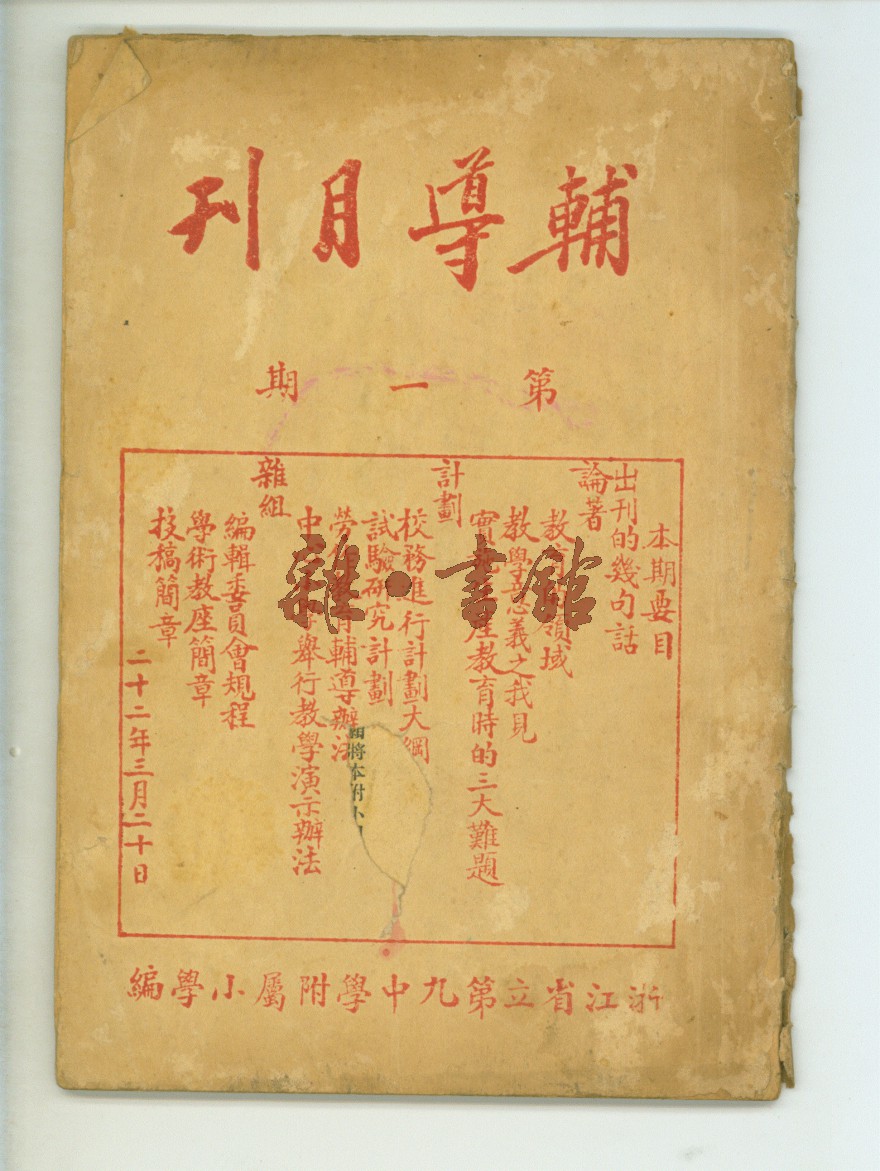 輔導月刊
第一期
本期要目
出刊的幾句話
論著
教育領域
教學意義之我見
實產教育時的三大難題
計劃
校務進行計劃大綱
試驗研究計劃
勞育輔導辦法
中舉行教學演示辦法
雜組
編輯委員會規程
學術教座簡章
投稿簡章
二十二年三月二十日
將本附小
浙江省立第九中學附屬小學編
雜·書館